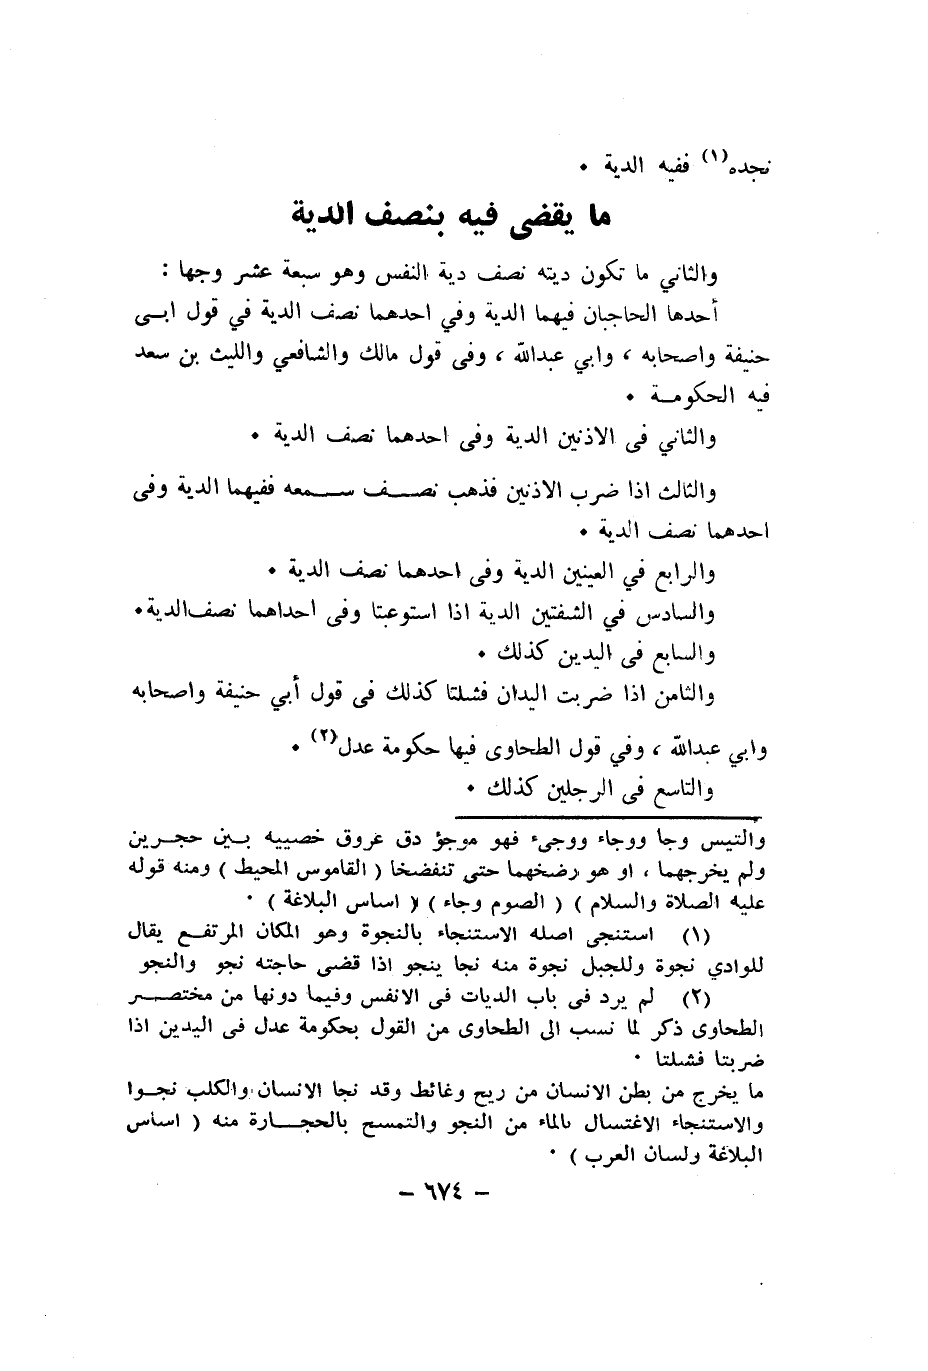 نجده(١) ففيه الدية ٠
ما يقضى فيه بنصف الدية
والثاني ما تكون ديته نصف دية النفس وهو سبعة عشر وجها :
أحدها الحاجبان فيهما الدية وفي احدهما نصف الدية في قول ابى
حنيفة واصحابه ، وابي عبدالله ، وفى قول مالك والشافعي والليث بن سعد
فيه الحكومة ٠
والثاني فى الاذنين الدية وفى احدهما نصف الدية ٠
والثالث اذا ضرب الاذنين فذهب نصف سمعه ففيهما الدية وفى
احدهما نصف الدية ٠
والرابع في العينين الدية وفى احدهما نصف الدية ٠
والسادس في الشفتين الدية اذا استوعبتا وفى احداهما نصف الدية ٠
والسابع فى اليدين كذلك ٠
والثامن اذا ضربت اليدان فشلتا كذلك فى قول أبي حنيفة واصحابه
وابي عبدالله ، وفي قول الطحاوى فيها حكومة عدل(٢) ٠
والتاسع فى الرجلين كذلك ٠
والتيس وجا ووجاء ووجىء فهو موجؤ دق عروق خصييه بين حجرين
ولم يخرجهما ، او هو رضخهما حتى تنفضخا ( القاموس المحيط ) ومنه قوله
عليه الصلاة والسلام ) ( الصوم وجاء ) ( اساس البلاغة ) ٠
(١) استنجى اصله الاستنجاء بالنجوة وهو المكان المرتفع يقال
للوادي نجوة وللجبل نجوة منه نجا ينجو اذا قضى حاجته نجو والنجو
(٢) لم يرد فى باب الديات فى الانفس وفيما دونها من مختصر
الطحاوى ذكر لما نسب الى الطحاوى من القول بحكومة عدل فى اليدين اذا
ضربتا فشلتا ٠
ما يخرج من بطن الانسان من ريح وغائط وقد نجا الانسان والكلب نجوا
والاستنجاء الاغتسال بالماء من النجو والتمسح بالحجارة منه ( اساس
البلاغة ولسان العرب ) ٠
– ٦٧٤ –